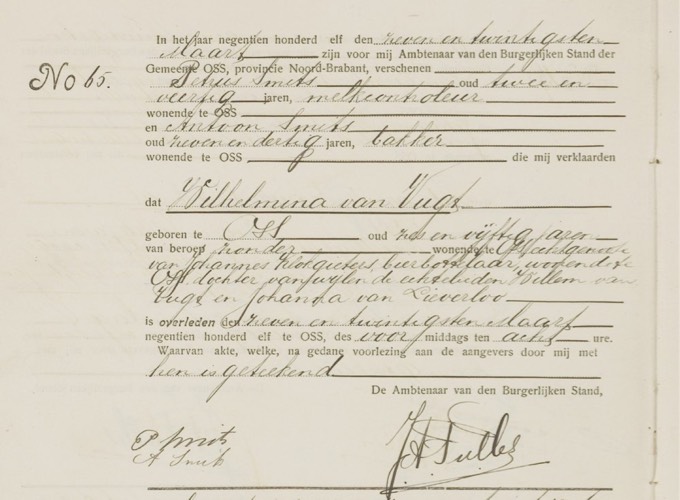 In het jaar negentien honderd elf den zeven en twintigsten
Maart zijn voor mij Ambtenaar van den Burgerlijken Stand der
Gemeente OSS, provincie Noord-Brabant, verschenen
No 65.
Petrus Smits oud twee en
veertig jaren, melkcontroleur
wonende te OSS
en Antoon Smits
oud zeven en dertig jaren, bakker
wonende te OSS die mij verklaarden
dat Wilhelmina van Vugt
geboren te Oss oud zes en vijftig jaren
van beroep zonder wonende te Oss, echtgenoote
van Johannes bierbottelaar, wonende te
Oss, dochter van wijlen de echtelieden Willem van
Vugt en Johanna van Lieverloo
is overleden den zeven en twintigsten Maart
negentien honderd elf te OSS, des voor middags ten acht ure.
Waarvan akte, welke, na gedane voorlezing aan de aangevers door mij met
hen is geteekend
De Ambtenaar van den Burgerlijken Stand,
P Smits
A Smits